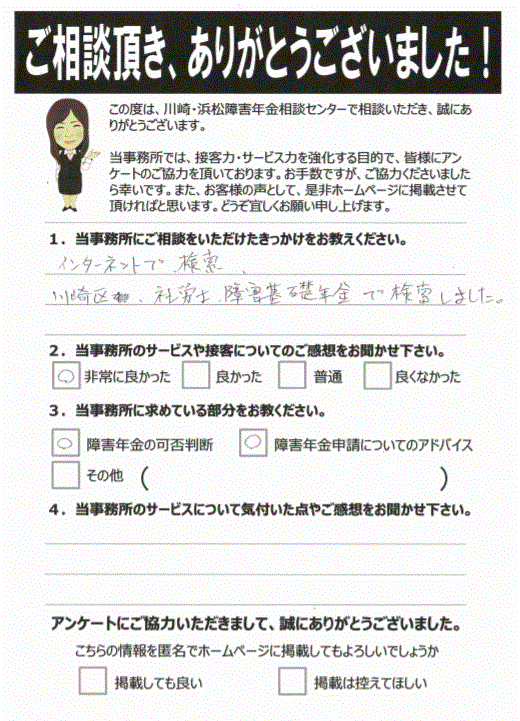 ご相談頂き、ありがとうございました！
この度は、川崎・浜松障害年金相談センターで相談いただき、誠にあ
りがとうございます。
当事務所では、接客力・サービス力を強化する目的で、皆様にアン
ケートのご協力を頂いております。お手数ですが、ご協力くださいました
ら幸いです。また、お客様の声として、是非ホームページに掲載させて
頂ければと思います。どうぞ宜しくお願い申し上げます。
1．当事務所にご相談をいただけたきっかけをお教えください。
インターネットで検索、
川崎区、社労士、障害基礎年金で検索しました。
2．当事務所のサービスや接客についてのご感想をお聞かせ下さい。
非常に良かった 良かった 普通 良くなかった
3．当事務所に求めている部分をお教ください。
障害年金の可否判断 障害年金申請についてのアドバイス
その他 ( )
4．当事務所のサービスについて気付いた点やご感想をお聞かせ下さい。
アンケートにご協力いただきまして、誠にありがとうございました。
こちらの情報を匿名でホームページに掲載してもよろしいでしょうか
掲載しても良い 掲載は控えてほしい